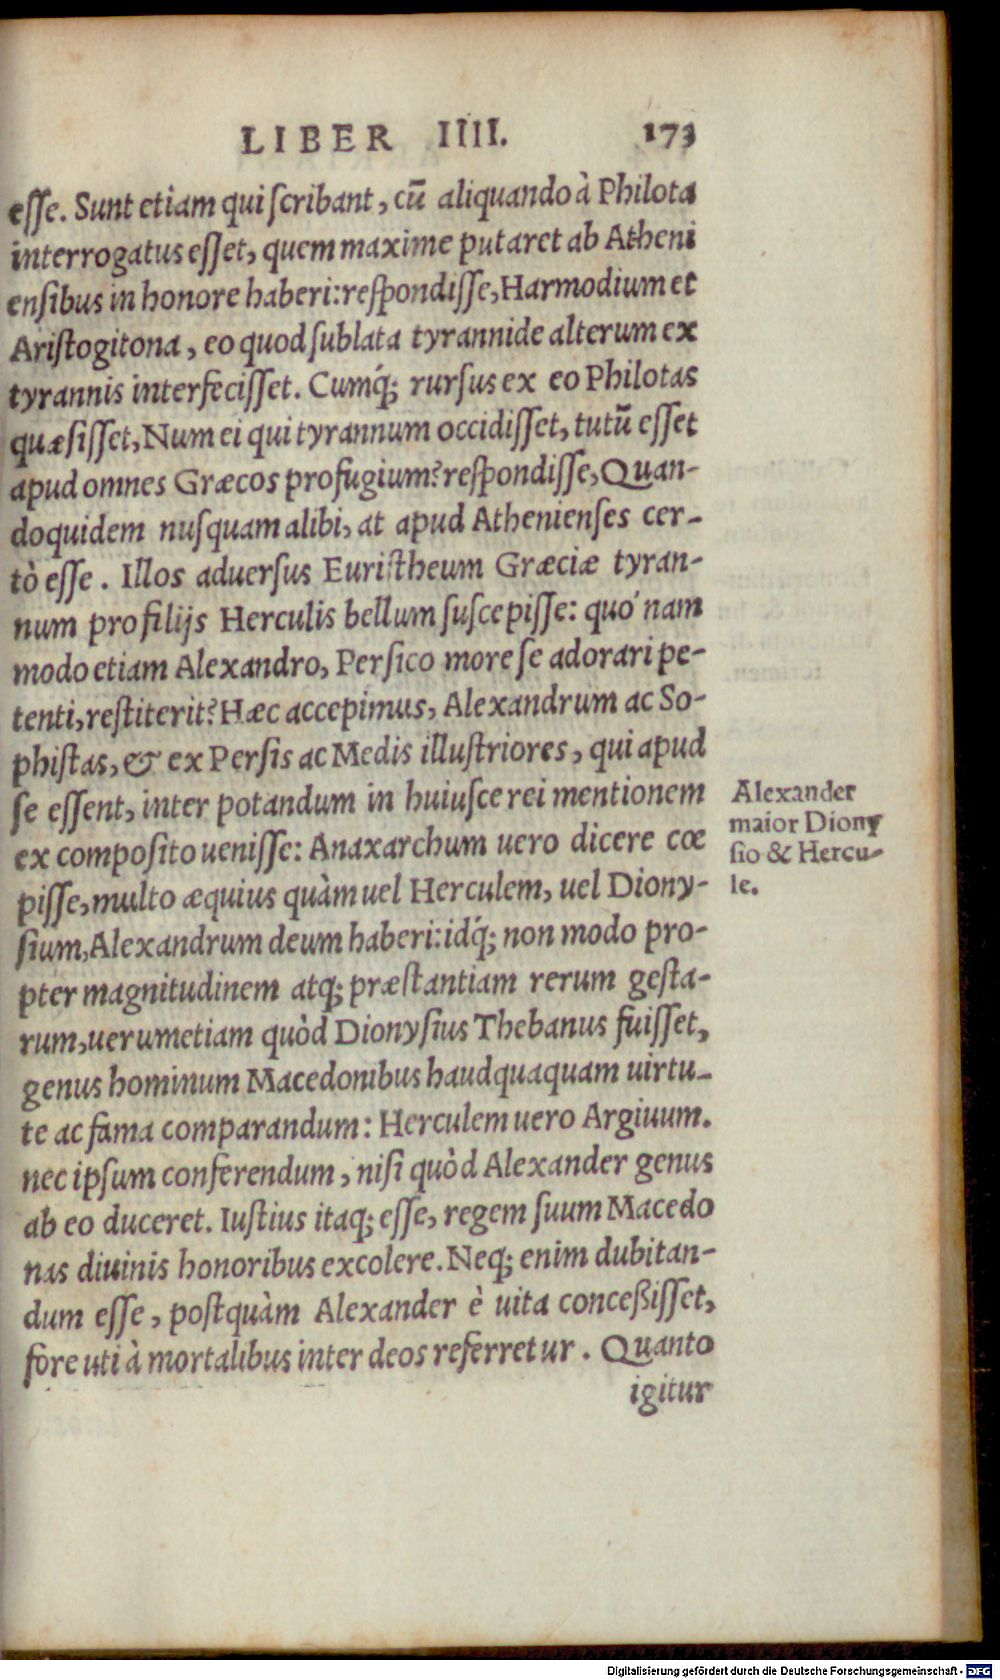 LIBER IIII. 173
esse. Sunt etiam qui scribant, cū aliquando à Philota
interrogatus esset, quem maxime putaret ab Atheni
ensibus in honore haberi: respondisse, Harmodium et
Aristogitona, eo quod sublata tyrannide alterum ex
tyrannis interfecisset. Cumq́; rursus ex eo Philotas
quæsisset, Num ei qui tyrannum occidisset, tutū esset
apud omnes Græcos profugium? respondisse, Quan-
doquidem nusquam alibi, at apud Athenienses cer-
tò esse. Illos aduersus Euristheum Græciæ tyran-
num pro filijs Herculis bellum suscepisse: quó nam
modo etiam Alexandro, Persico more se adorari pe-
tenti, restiterit? Hæc accepimus, Alexandrum ac So-
phistas, & ex Persis ac Medis illustriores, qui apud
se essent, inter potandum in huiusce rei mentionem
ex composito uenisse: Anaxarchum uero dicere cœ
pisse, multo æquius quàm uel Herculem, uel Diony-
sium, Alexandrum deum haberi: idq́; non modo pro-
pter magnitudinem atq; præstantiam rerum gesta-
rum, uerumetiam quòd Dionysius Thebanus fuisset,
genus hominum Macedonibus haudquaquam uirtu-
te ac fama comparandum: Herculem uero Argiuum.
nec ipsum conferendum, nisi quòd Alexander genus
ab eo duceret. Iustius itaq; esse, regem suum Macedo
nas diuinis honoribus excolere. Neq; enim dubitan-
dum esse, postquàm Alexander è uita conceßisset,
fore uti à mortalibus inter deos referretur. Quanto
igitur
Alexander
maior Diony
sio & Hercu-
le.
Digitalisierung gefördert durch die Deutsche Forschungsgemeinschaft - DFG